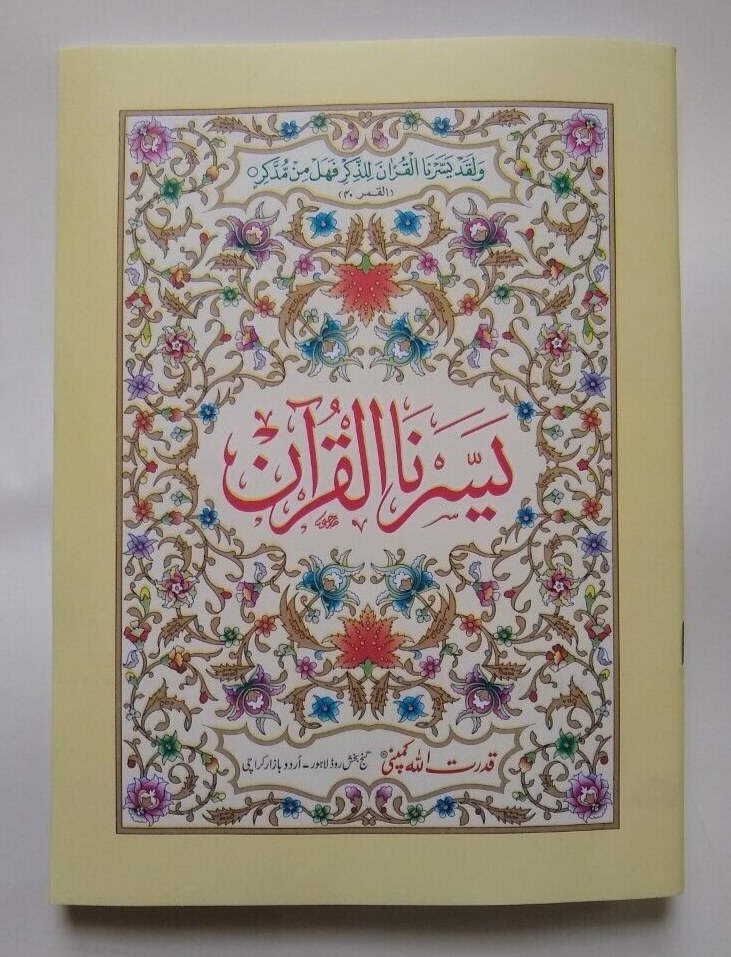 وَلَقَدْ يَسَّرْنَا الْقُرْاٰنَ لِلذِّكْرِ فَهَلْ مِنْ مُّدَّكِرٍ ○
(القمر ۴۰)
يَسَّرْنَا الْقُرْآن
قدرت اللہ کمپنی® گنج بخش روڈ لاہور - اُردو بازار کراچی